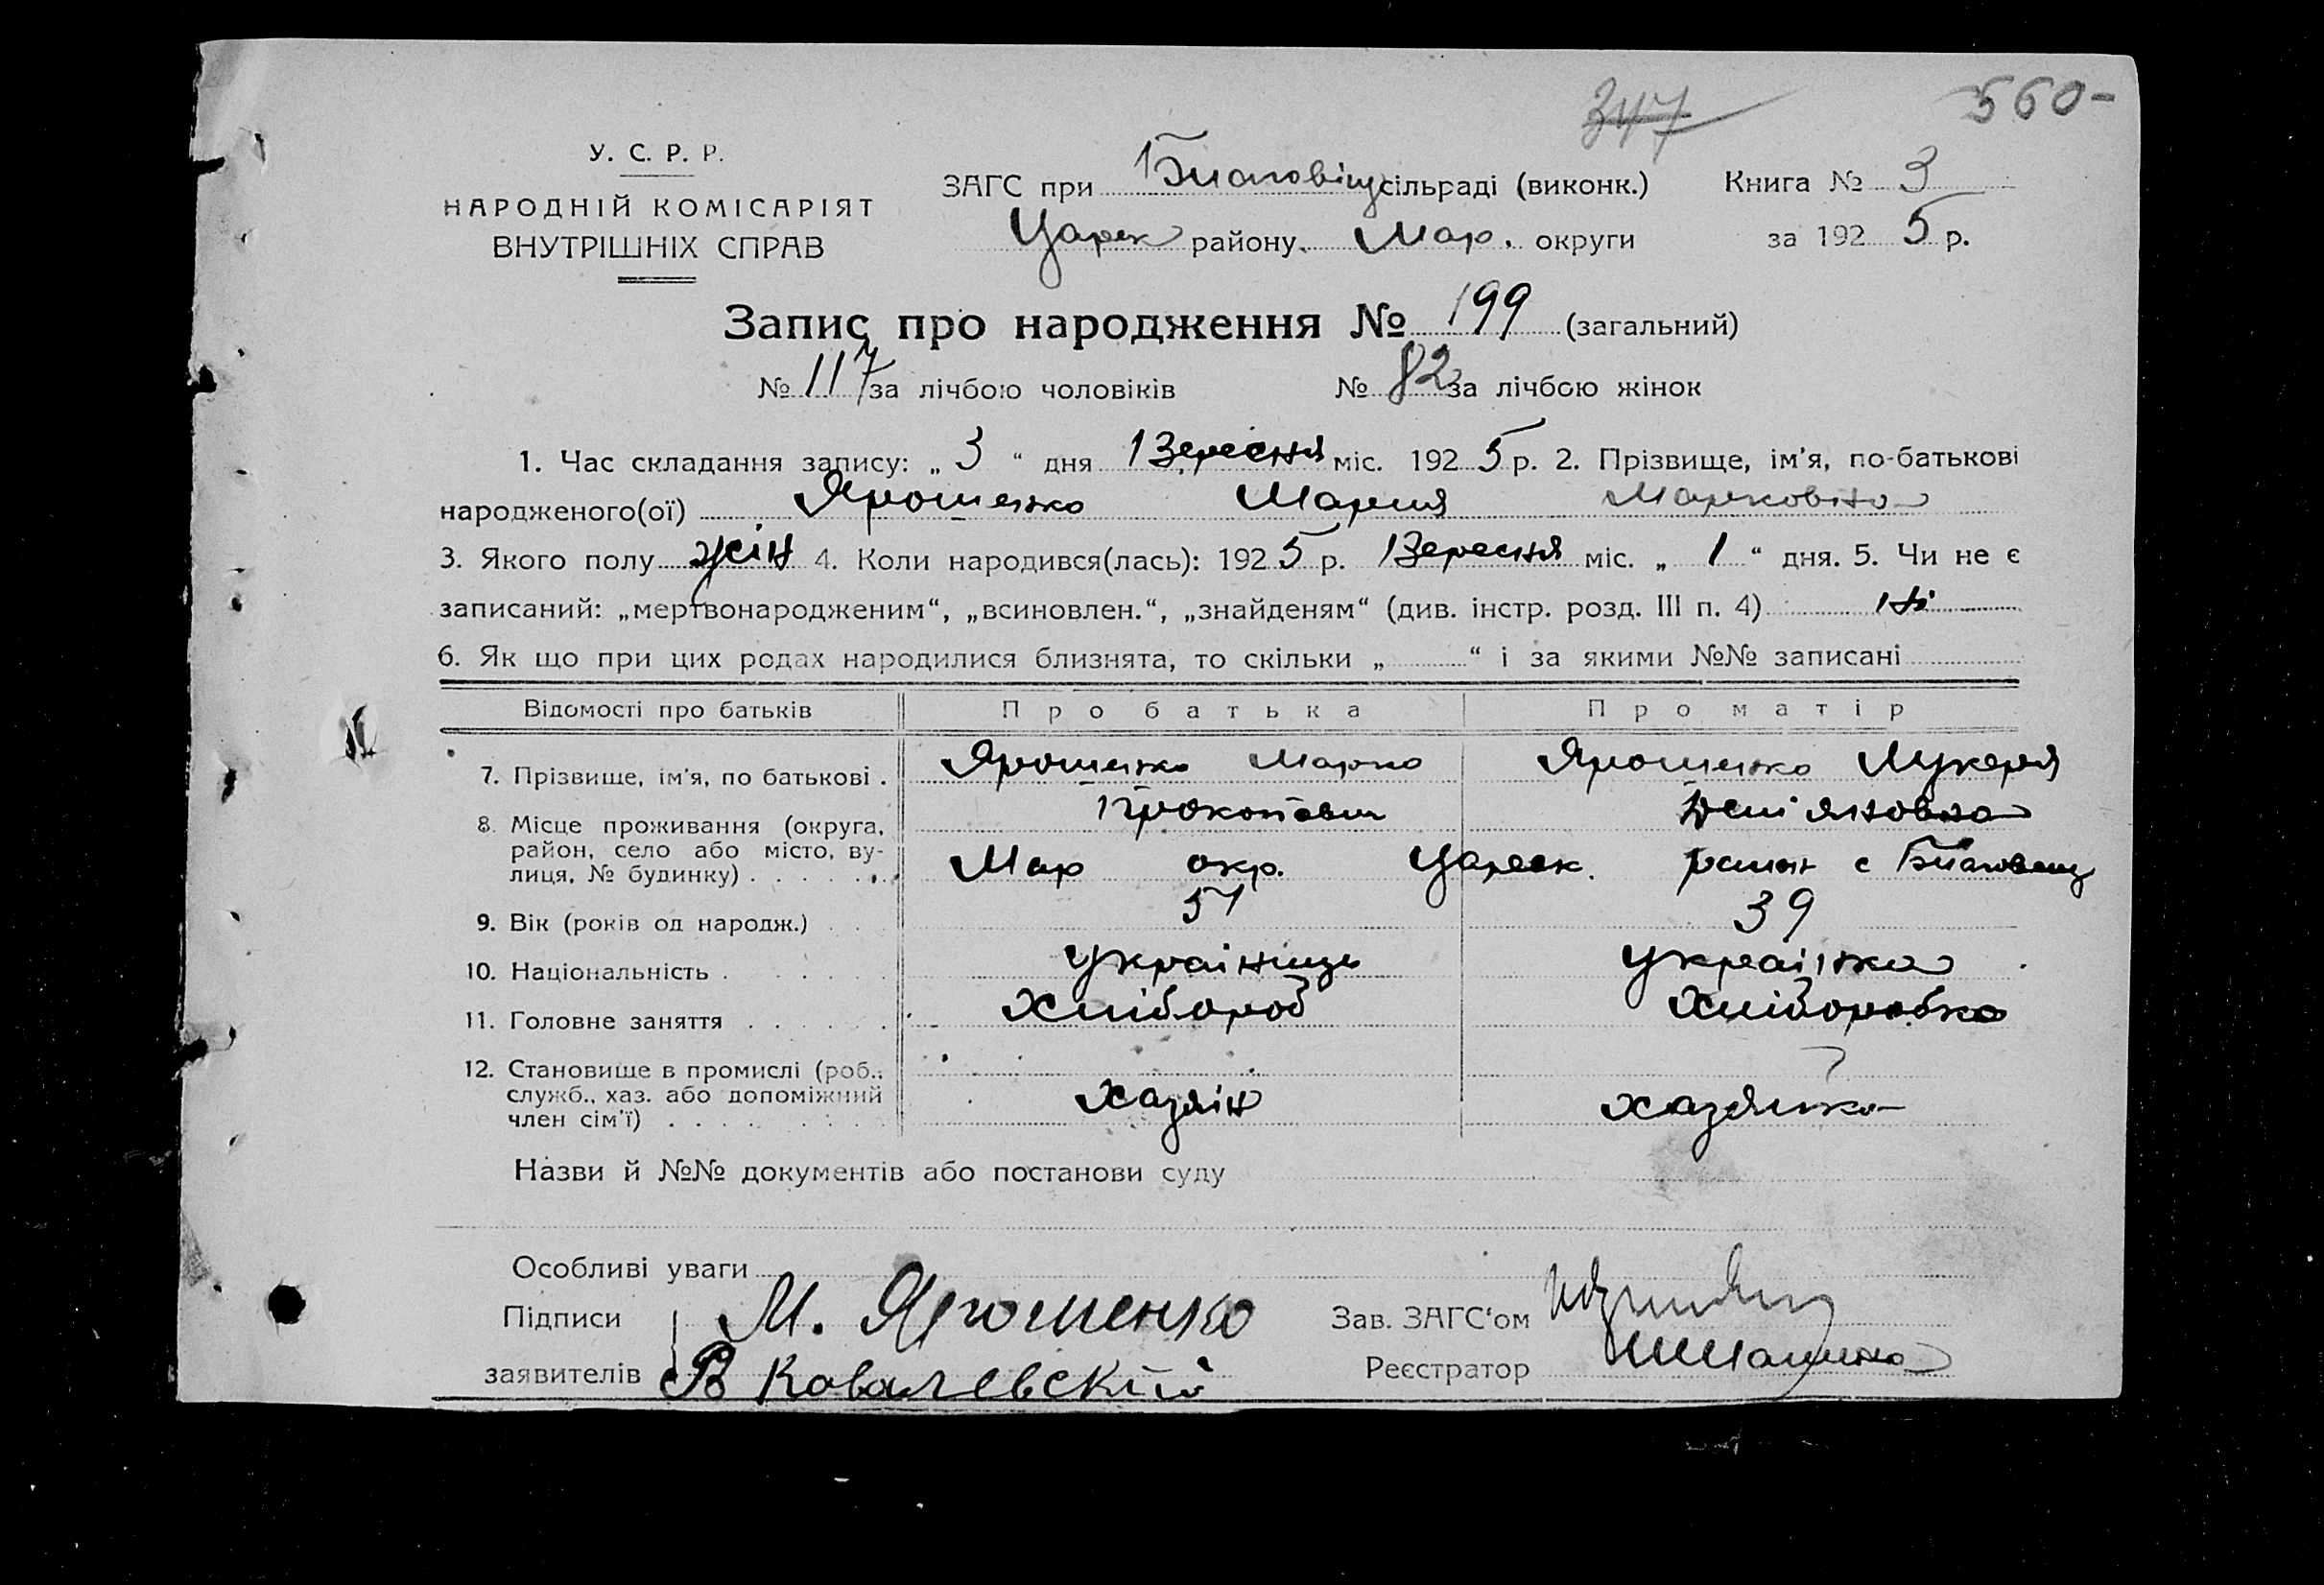 347
560-
У. С. Р. Р.
НАРОДНІЙ КОМІСАРІЯТ
ВНУТРІШНІХ СПРАВ
ЗАГС при Благовіщ сільраді (виконк.) Книга № 3
Царек району. Мар. округи за 1925 р.
Запис про народження № 199 (загальний)
№ 117 за лічбою чоловіків № 82 за лічбою жінок
1. Час складання запису: „ 3 “ дня Вересня міс. 1925 р. 2. Прізвище, ім’я, по-батькові
народженого(ої) Ярошенко Мария Марковна
3. Якого полу жін 4. Коли народився(лась): 1925 р. Вересня міс. „ 1 “ дня. 5. Чи не є
записаний: „мертвонародженим“, „всиновлен.“, „знайденям“ (див. інстр. розд. III п. 4) ні
6. Як що при цих родах народилися близнята, то скільки „ “ і за якими №№ записані
Відомості про батьків Про батька Про матір
7. Прізвище, ім’я, по батькові . Ярошенко Марко Ярошенко Лукеря
Прокопович Дем'яновна
8. Місце проживання (округа,
район, село або місто, ву-
лиця, № будинку) Мар окр. Царек. район с Благовещ
9. Вік (років од народж.) 51 39
10. Національність українець українка
11. Головне заняття Хлібороб Хліборобка
12. Становище в промислі (роб.,
служб., хаз. або допоміжний
член сім’ї) Хазяїн хазяйка
Назви й №№ документів або постанови суду
Особливі уваги
Підписи М. Ярошенко Зав. ЗАГС‘ом
заявителів В Ковалевский Реєстратор